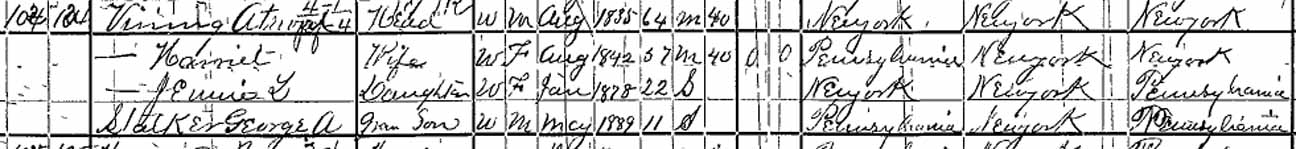 104 124 Vining Head W M Aug 1835 64 M 40 Newyork Newyork Newyork
— Harriet Wife W F Aug 1842 57 M 40 0 0 Pennsylvania Newyork Newyork
— Jennie L Daughter W F Jan 1878 22 S Newyork Newyork Pennsylvania
Stalker George A Gran Son W M May 1889 11 S Pennsylvania Newyork Pennsylvania